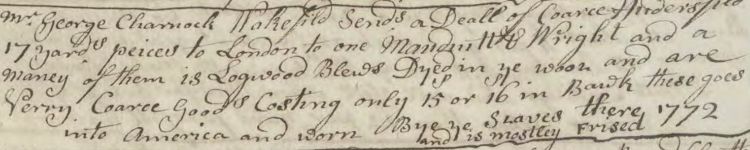 Mr. George Charnock Wakefild Sends a Deall of Coarce
17 yards peices to London to one Wright and a
Maney of them is Logwood Blews Dyed in ye woon and are
Verry Coarce Goods Costing only 15s or 16s in Bawk these goes
into America and worn Bye ye Slaves there 1772
and is mostley Frised